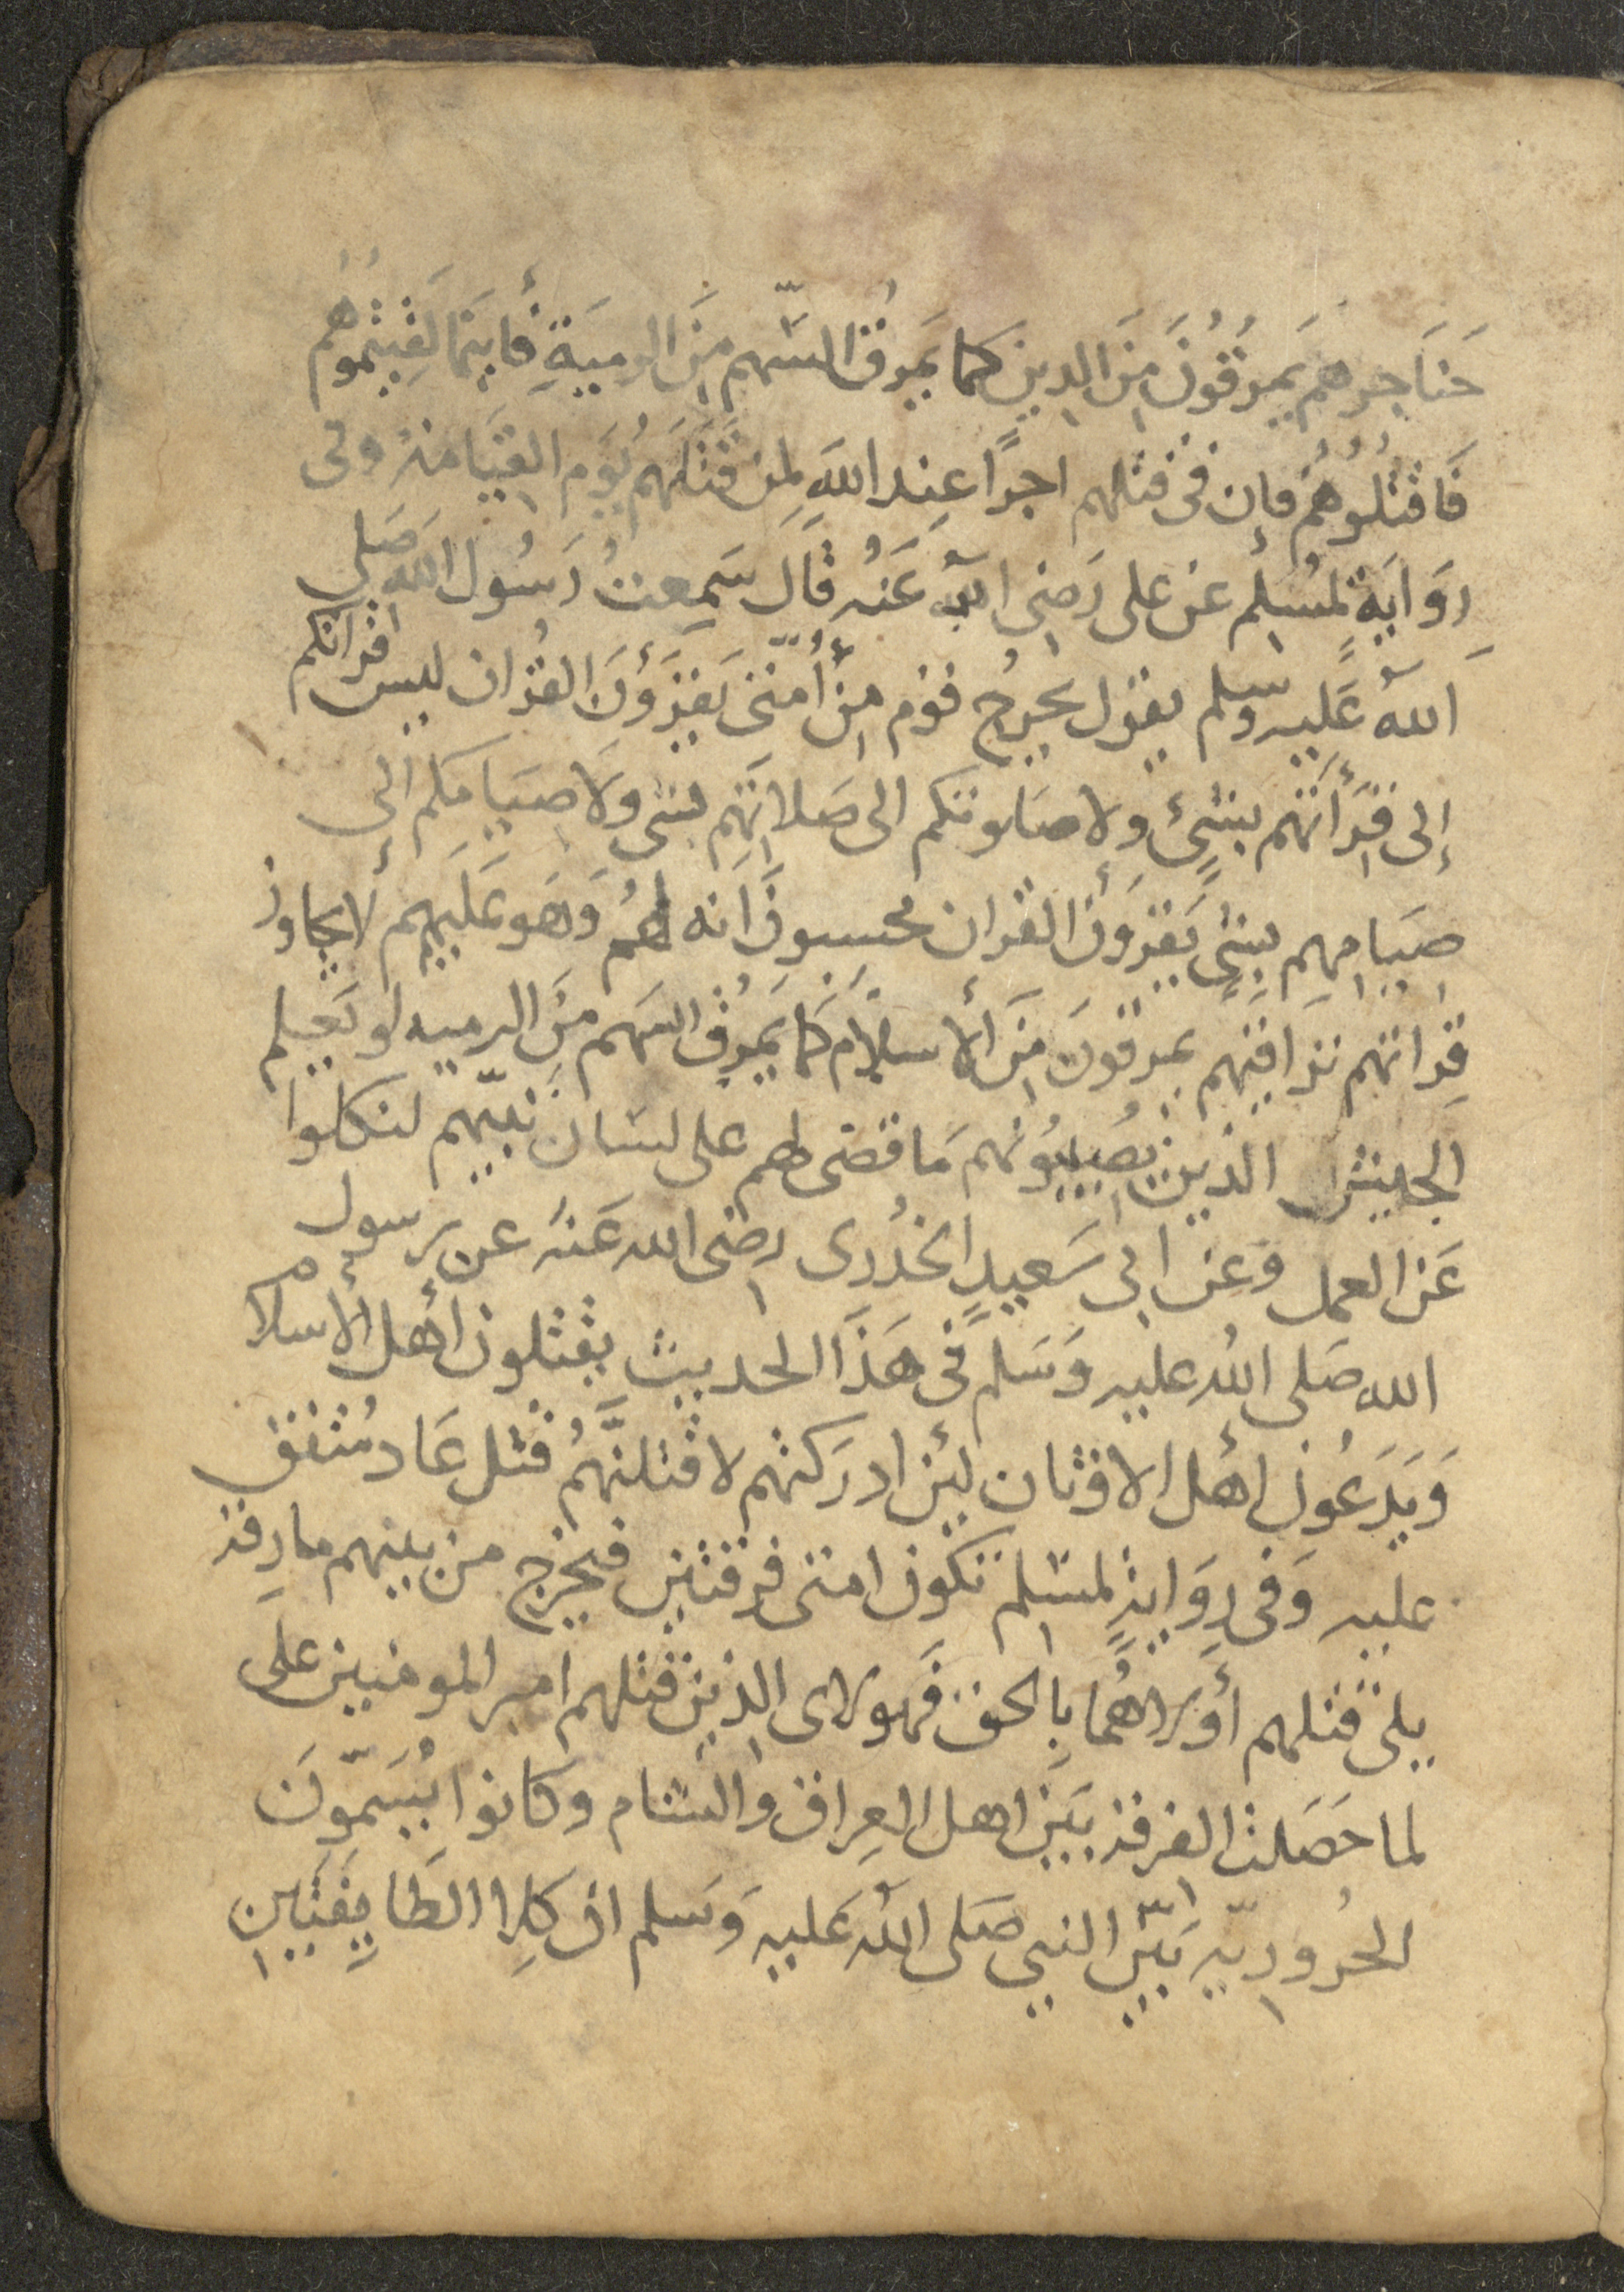 حَنَاجِرهمُ يَمرُقُونَ مِنَ الدِين كما يَمرقُ السّهم مِنَ الرميَةِ فأينمَا لَقِيتُموُهُم
فَاقتُلُوُهُمُ فإن فى قتلهم اجرًا عِند اللهِ لِمن قَتَلَهم يَوَم القيَامة وفى
رِوَايَةٍ لمُسْلِم عن على رَضِى اللهُ عَنُه قَالَ سَمِعتُ رَسُول الله صَلى
اللهُ عَليه وسلم يقول يخرجُ قوم مِنْ أُمّتى يَقرَؤنَ القُرْان ليس قرانكم
إلى قِرَأنَتهم بشىءٍ ولا صلوتكم الى صَلاتَهِم بشى ولا صيَامَكم الى
صيَامِهم بشىٍ يَقرَؤن القران يحسبونَ انه لهُم وَهوَ عَليهم لا يجاوز
قِراتهم تَراقيَهم يمرقونَ مِنَ ألا سلَام كمَا يَمرقُ السَهم مِنَ الرميه لو يَعلم
الجيش الذين يُصيبوُنهم مَا قضى لهم على لسَان نَبيّهم لنكلوا
عَن العمل وَعن ابى سَعيدٍ الخُدرى رضى الله عَنه عن رسول
الله صَلى اللهُ عليه وَسَلم فى هَذَا الحديث يقتلون أهل الإسلام
وَيَدَعُون أهل الاوثان لئن ادرَكتهم لا قتلنَّهُم قتل عَاد مُتفق
عليه وَفى رِوَايةٍ لمسْلم تكون امتى فرقتين فيخرج من بينهم مارقة
يلى قتلهم أولاهُما بِالحق فَهولاى الذِين قتلهم امير المومنين على
لما حَصَلت الفرقة بَيَن اهل العِراق وَالشام وكانوا يُسَمّونَ
الحُروريّه بَيّن النبى صَلى اللهُ عَليه وَسَلم ان كلِا الطَايفَتَين